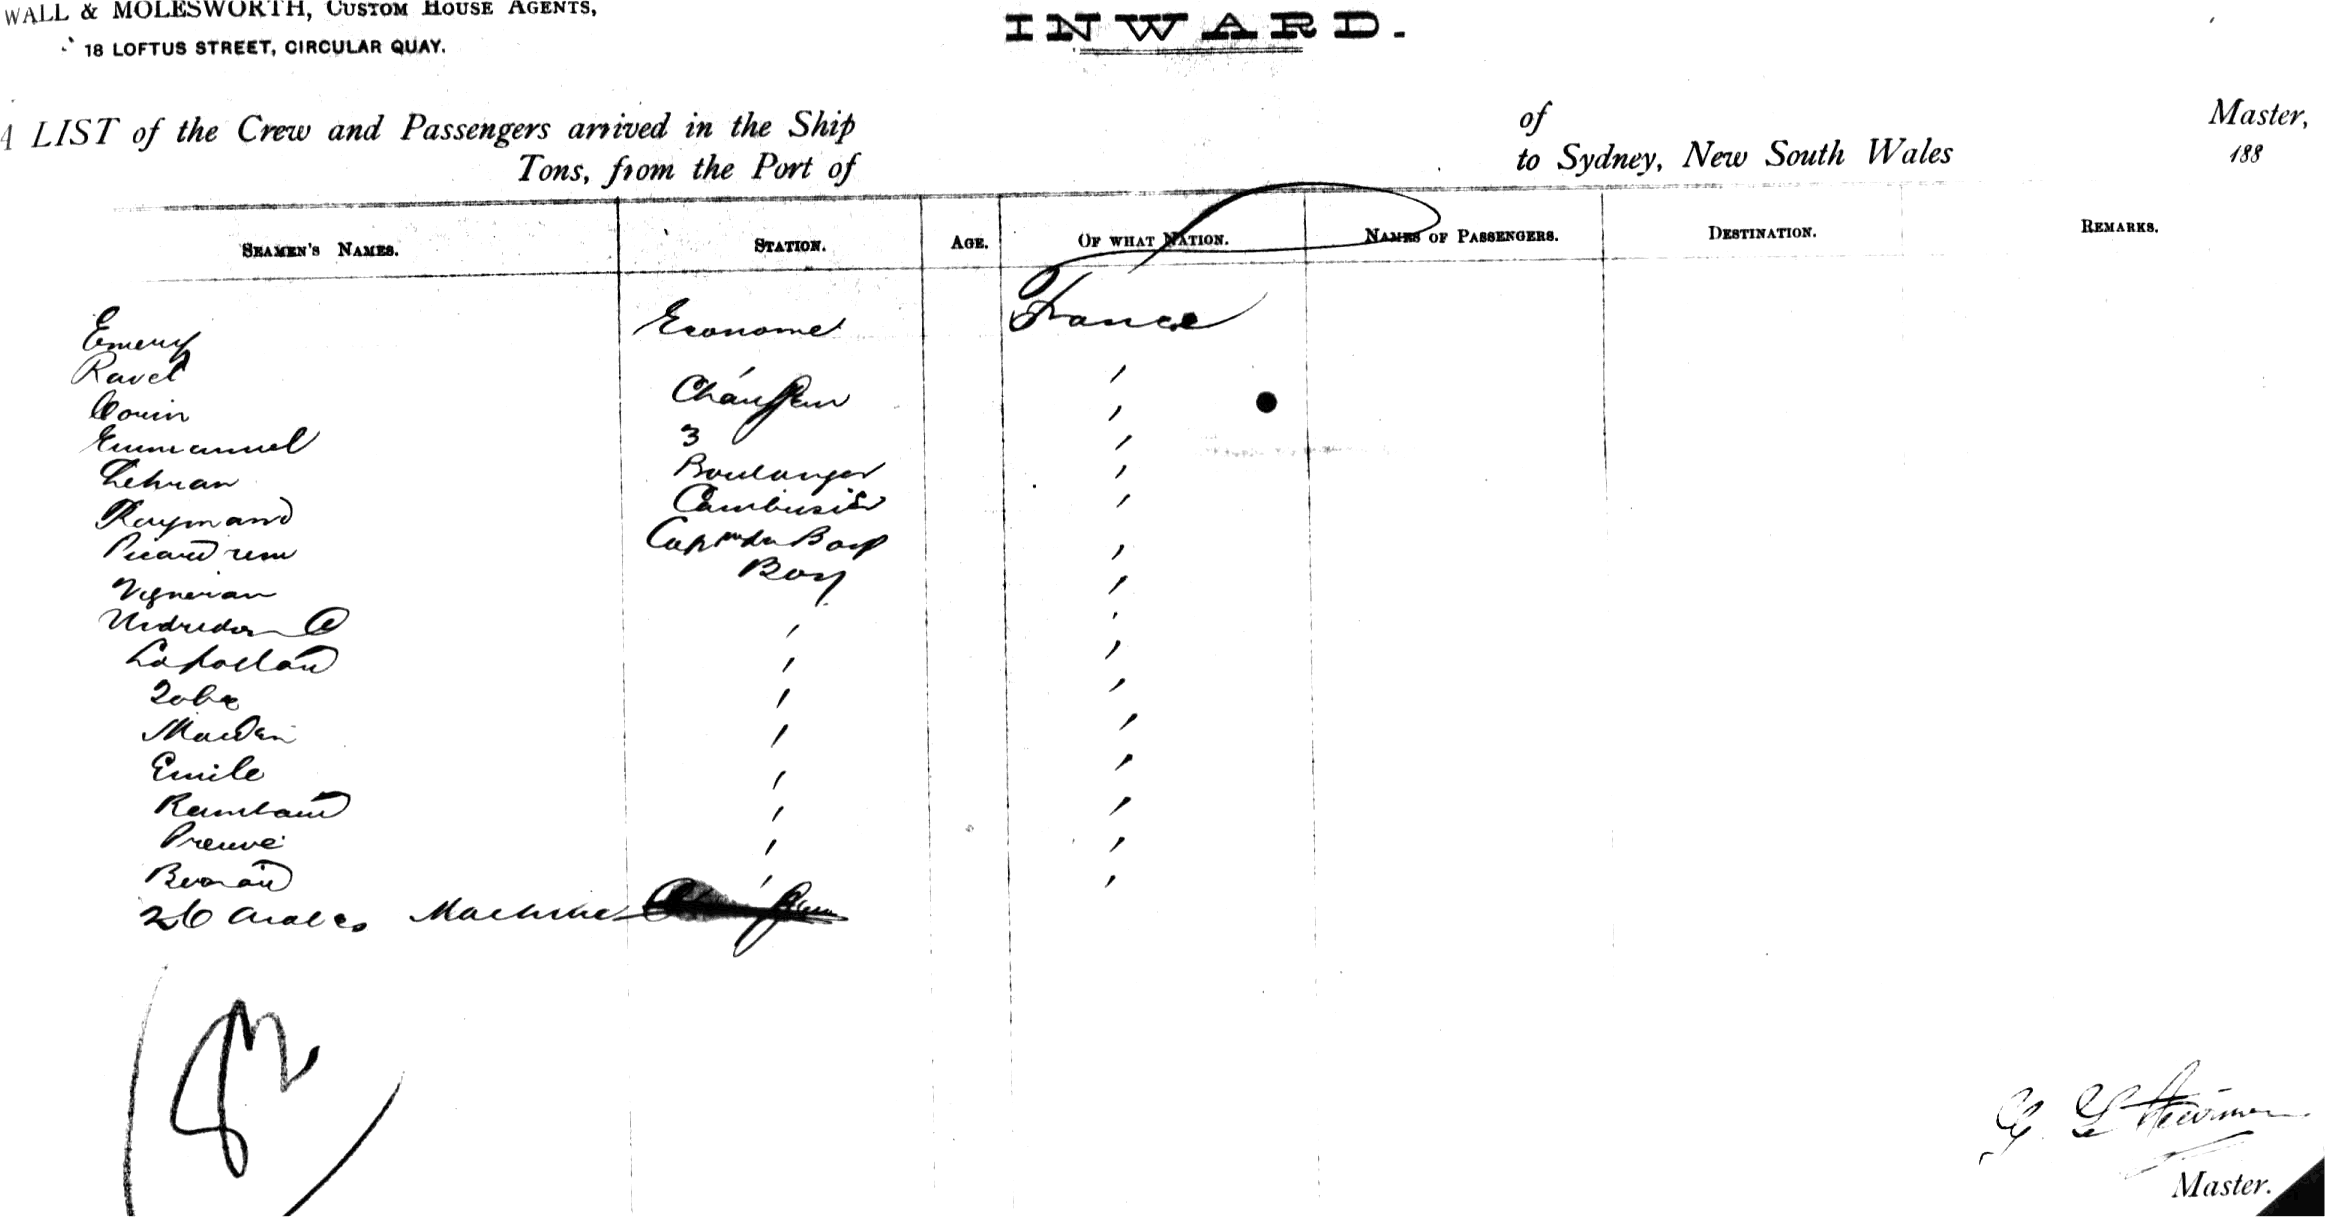 WALL & MOLESWORTH, CUSTOM HOUSE AGENTS,
18 LOFTUS STREET, CIRCULAR QUAY.
INWARD.
A LIST of the Crew and Passengers arrived in the Ship of Master,
Tons, from the Port of to Sydney, New South Wales 188
SEAMEN'S NAMES. STATION. AGE. OF WHAT NATION. NAMES OF PASSENGERS. DESTINATION. REMARKS.
Emery Econome France
Ravel ' '
Couin Chauffeur '
Emmanuel 3 '
Lehran Boulanger '
Raymond Cambusier '
Picard Boy '
Vigneran Boy '
' '
' '
' '
' '
Emile ' '
Rambaud ' '
Preuve ' '
' '
26 Arabes Machine
Master.